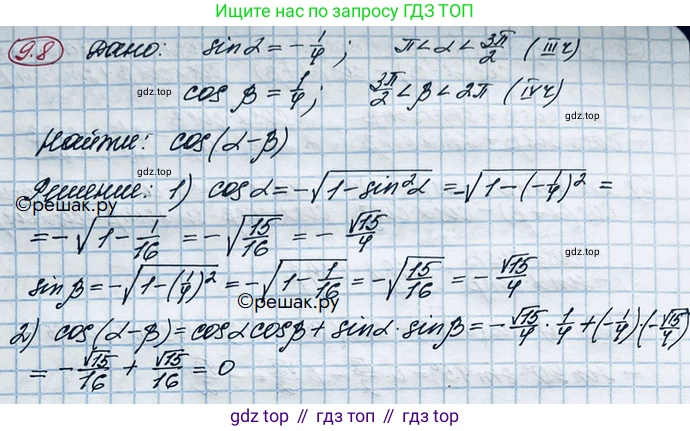 Ищите нас в поиске ГДЗ ТОП
9.8 Дано: sin α = -1/4; π < α < 3π/2 (III ч)
gdz.top
cos β = 1/4; 3π/2 < β < 2π (IV ч)
gdz.top
gdz.top
Найти: cos(α-β)
gdz.top
Решение: 1) cos α = -√(1-sin²α) = -√(1-(-1/4)²) =
©решак.ру
= -√(1-1/16) = -√(15/16) = -√15/4
gdz.top
sin β = -√(1-(1/4)²) = -√(1-1/16) = -√(15/16) = -√15/4
©решак.ру
2) cos(α-β) = cosα cosβ + sinα · sinβ = -√15/4 · 1/4 + (-1/4)·(-√15/4)
= -√15/16 + √15/16 = 0
gdz top | гдз топ | gdz.top